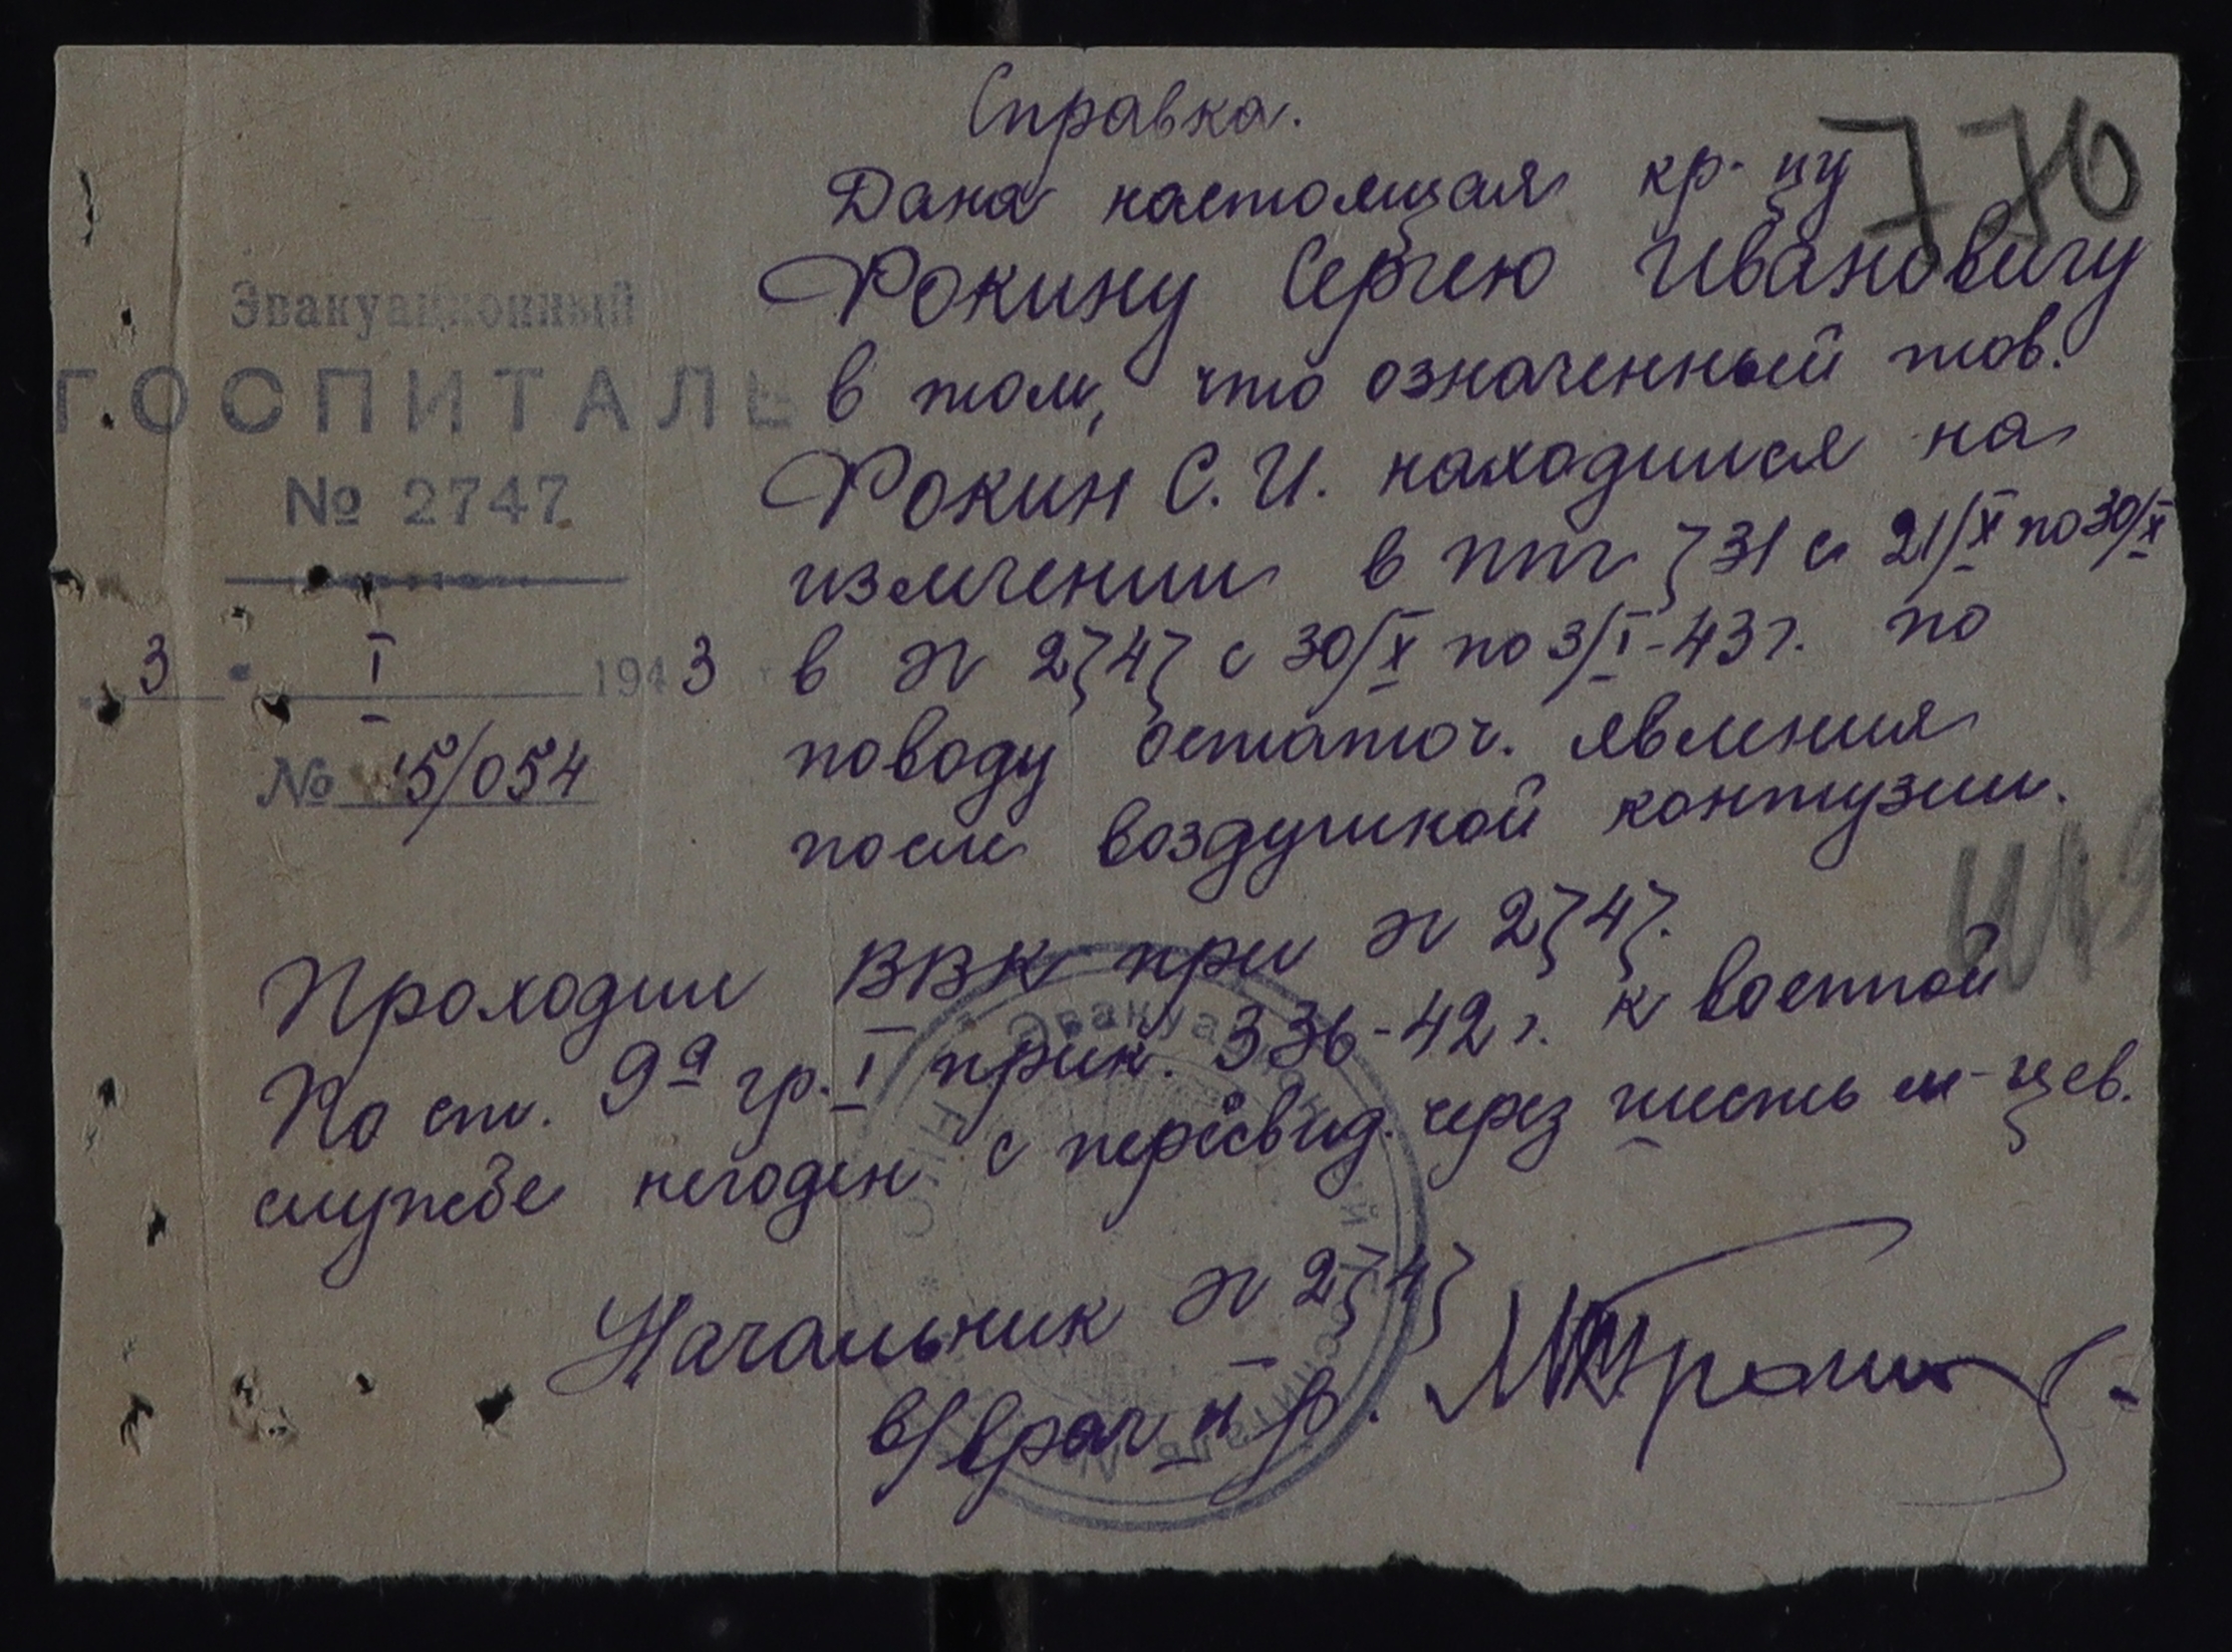 Справка.
770
Дана настоящая кр-цу
Фокину Сергею Ивановичу
в том, что означенный тов.
Фокин С. И. находился на
излечении в ппг 731 с 21/X по 30/X
в эг 2747 с 30/X по 3/I-43г. по
поводу остаточ. явления
после воздушной контузии.
Эвакуационный
ГОСПИТАЛЬ
№ 2747
3 I 1943
№ 15/054
Проходил ВВК при эг 2747.
По ст. 9а гр. I прик. 336-42г. к военной
службе негоден с переосвид. через шесть м-цев.
Начальник эг 2747
в/врач II р.